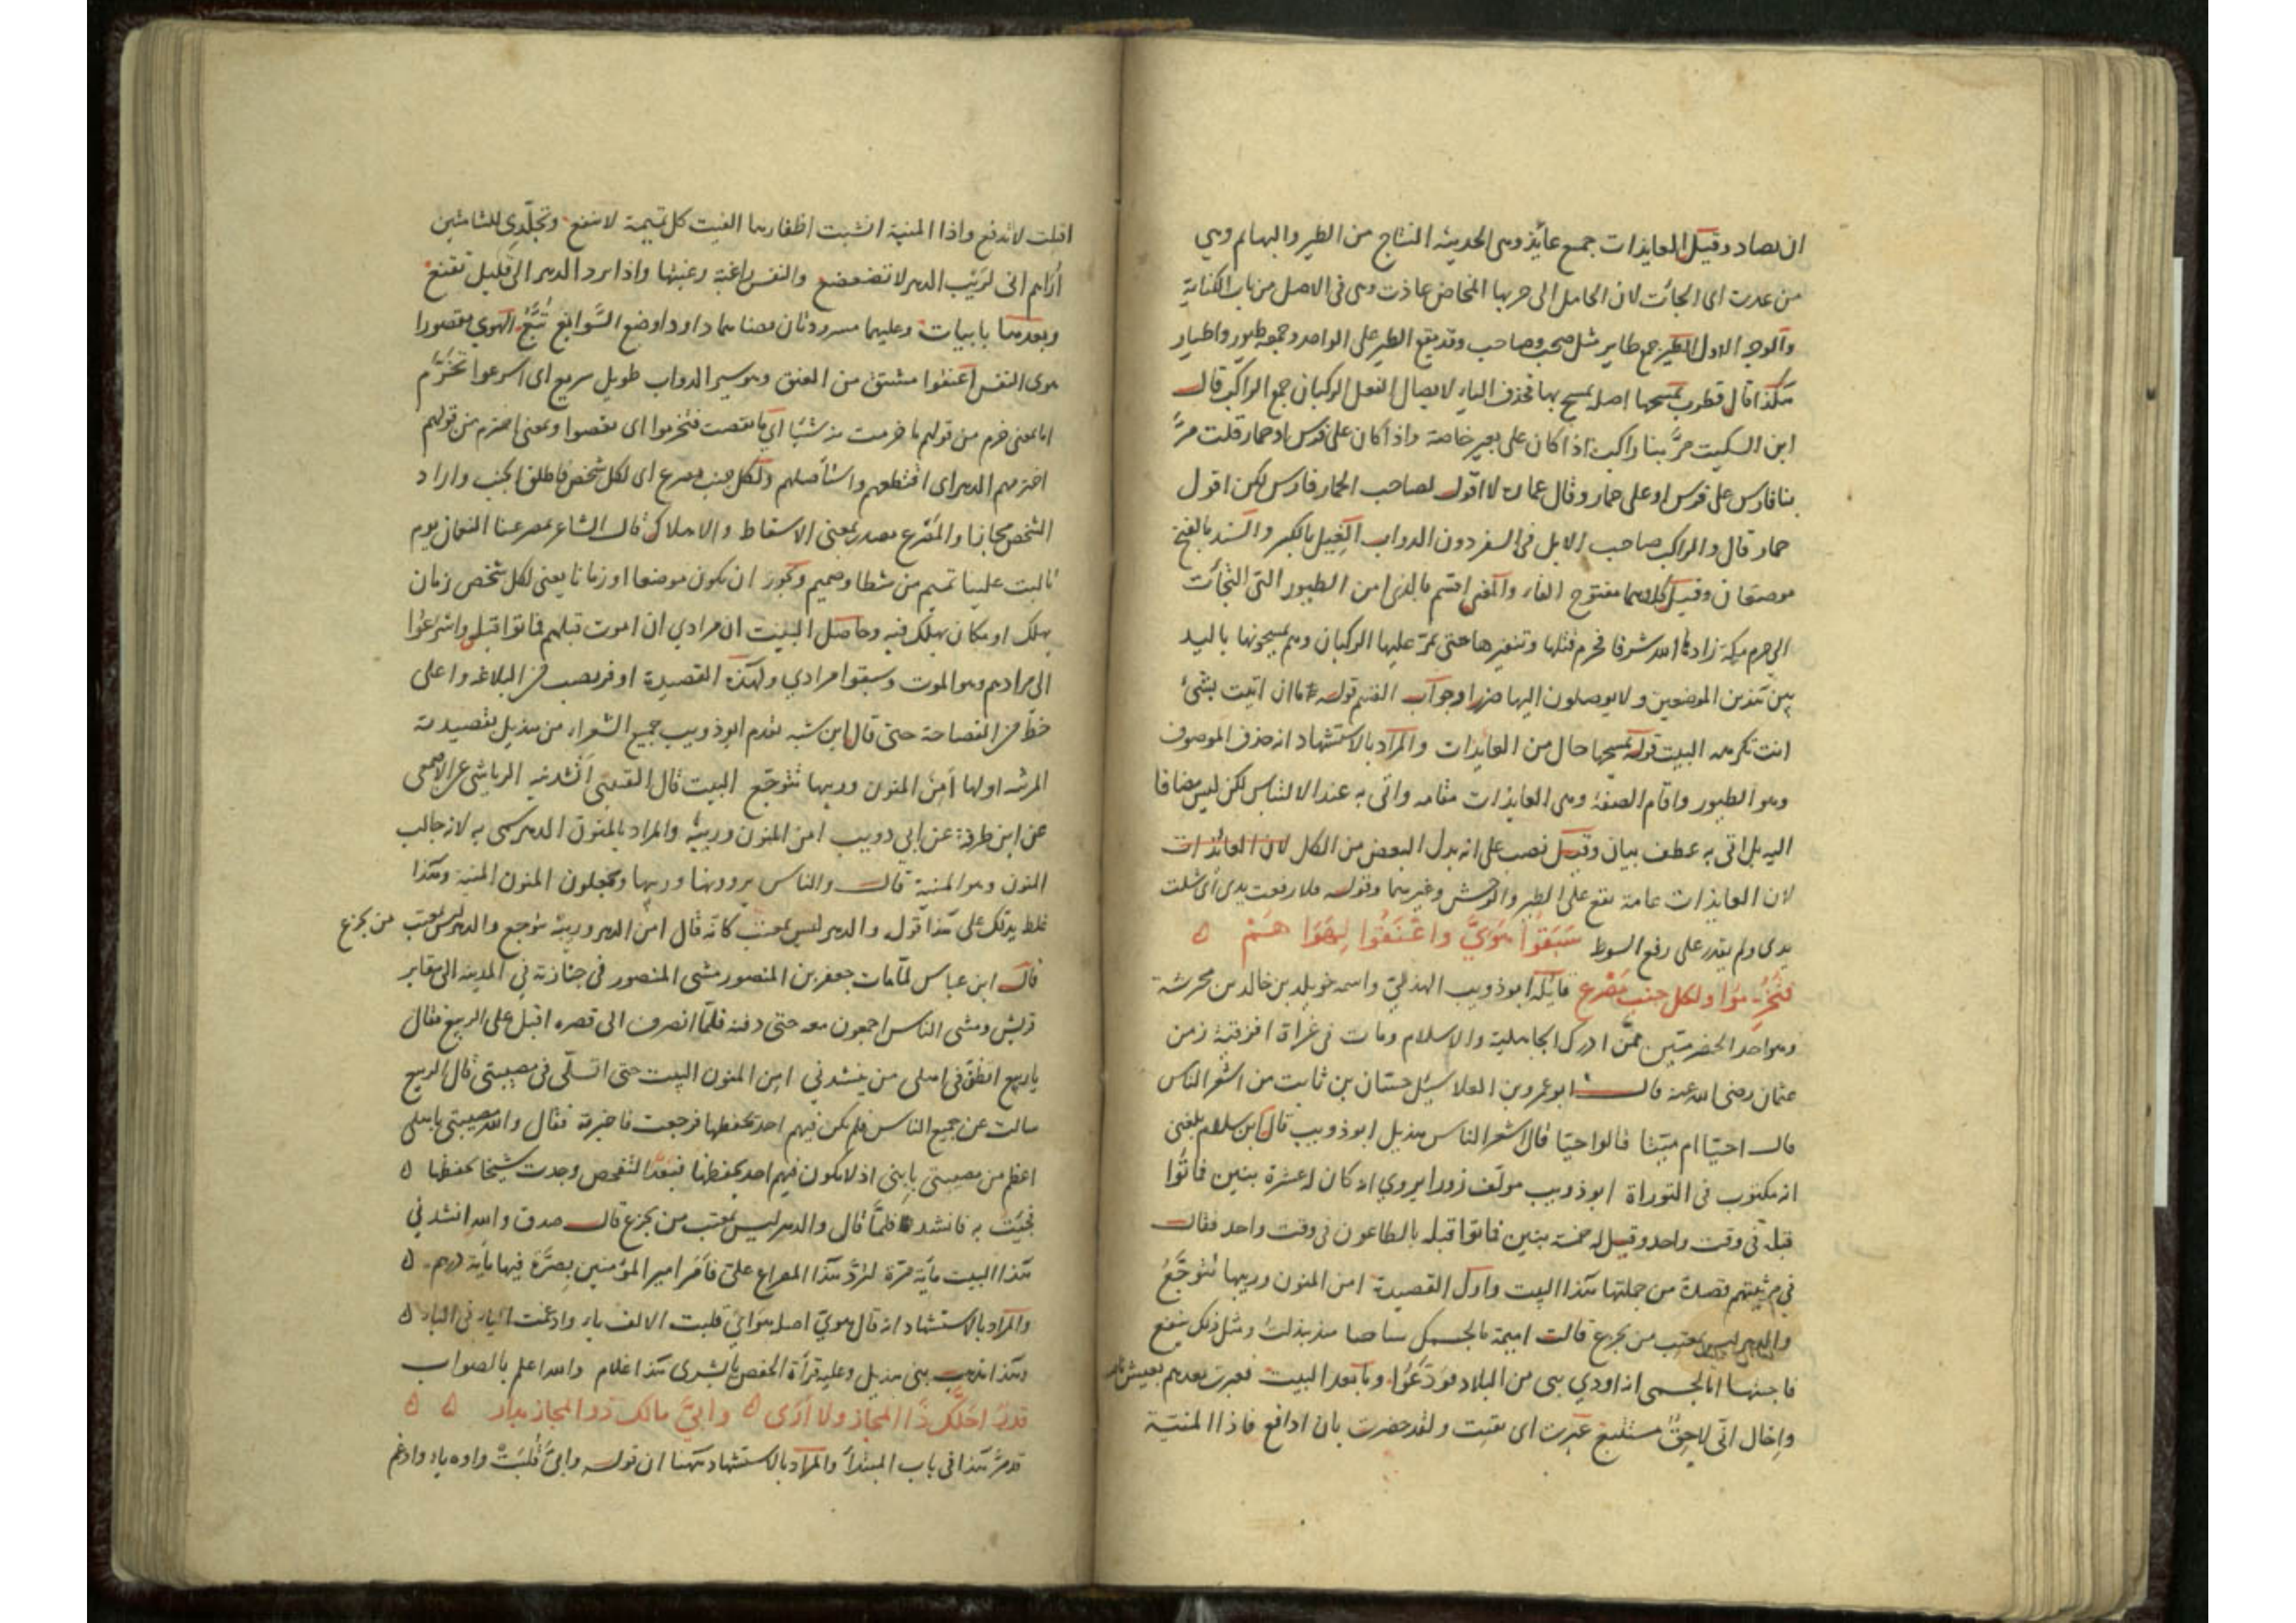 ان يصاد وقيل العايذات جمع عائذ وهى الحديثة النتاج من الطير والبهائم وهى
من عذت اى الجأت لان الحامل الى حربها المخاض عاذت وهى فى الاصل من باب الكناية
والوجه الاول الطير جمع طاير مثل صحب وصاحب وقد يقع الطير على الواحد وجمعه طيور واطيار
هكذا قال قطرب تمسحها اصله تمسح بها فحذف الباء لايصال الفعل الركبان جمع الراكب قال
ابن السكيت مرّ بنا راكب اذا كان على بعير خاصة واذا كان على فرس او حمار قلت مرّ
بنا فارس على فرس او على حمار وقال عمارة لا اقول لصاحب الحمار فارس لكن اقول
حمار قال والراكب صاحب الابل فى السفر دون الدواب الغيل بالكسر والسند بالفتح
موضعان وقيل كلاهما مفتوح الفاء والمعنى اقسم بالذى امن الطيور التى التجأت
الى حرم مكة زادها الله شرفا فحرم قتلها وتنفيرها حتى تمرّ عليها الركبان وهم يمسحونها باليد
بين هذين الموضعين ولا يوصلون اليها ضررا وجواب القسم قوله ما ان اتيت بشئ
انت تكرهه البيت قوله تمسحها حال من العايذات والمراد بالاستشهاد انه حذف الموصوف
وهو الطيور واقام الصفة وهى العايذات مقامه واتى به عند الالتباس لكن ليس مضافا
اليه بل اتى به عطف بيان وقيل نصب على انه بدل البعض من الكل لان العائذات
لان العايذات عامة تقع على الطير والوحش وغيرهما وقوله فلا رفعت يدى اى شلت
يدى ولم يقدر على رفع السوط سَبَقُوا هَوَيَّ واعْنَقُوا لِهَوَاهُمْ ه
فتُخُرِّمُوا ولكل جنب مَصْرع قائله ابو ذويب الهذلىّ واسمه خويلد بن خالد بن محرثة
وهو احد المخضرمين ممّن ادرك الجاهلية والاسلام ومات فى غزاة افريقية زمن
عثمان رضى الله عنه قال ابو عمرو بن العلا سئل حسّان بن ثابت من اشعر الناس
قال احيّا ام ميّتا قالوا حيّا قال اشعر الناس هذيل ابو ذويب قال ابن سلام بلغنى
انه مكتوب فى التوراة ابو ذويب مولف زورا يروي انه كان له عشرة بنين فماتُوا
قبله فى وقت واحد وقيل له خمسة بنين فماتوا قبله بالطاعون فى وقت واحد فقال
في مرثيتهم قصدة من جملتها هذا البيت واول القصيدة امن المنون وريبها تتوجّعُ
والدهر ليس بمعتب من يجزع قالت اميمة ما لجسمك شاحبا منذ بذلت ومثل ذلك ينفع
فاجبتها امّا لجسمى انه اودي بنى من البلاد فودّعُوا وما بعد البيت فغبرت بعدهم بعيش ناصب
واخال انّى لاحقٌ مستتبع غبرت اى بقيت ولقد حرصت بان ادافع فاذا المنيّة
اقبلت لا تدفع واذا المنية انشبت اظفارها الفيت كل تميمة لا تنفع وتجلّدى للشامتين
اُراهم انى لرَيْب الدهر لا تضعضع والنفس راغبة رغبتها واذا ترد الى قليل تقنع
وبعدها بابيات وعليهما مسرودتان قضاهما داود او صنع السّوابغ تُبّعُ الهوي مقصورا
هوى النفس اعنقوا مشتق من العنق وهو سير الدواب طويل سريع اى اسرعوا تخرّم
اما بمعنى خرم من قولهم ما خرمت منه شيئا اي ما نقصت فتخرموا اى نقصوا وبمعنى اخترم من قولهم
اخترمهم الدهر اى اقتطعهم واستأصلهم ولكل جنب مصرع اى لكل شخص فاطلق الجنب واراد
الشخص مجازا والمصرع مصدر بمعنى الاسقاط والاهلاك قال الشاعر بمصرعنا النعمان يوم
تالبت علينا تميم من شظا وصميم ويجوز ان يكون موضعا او زمانا يعنى لكل شخص زمان
يهلك او مكان يهلك فيه وحاصل البيت ان مرادي ان اموت قبلهم فماتوا قبلى واسرعُوا
الى مرادهم وهو الموت وسبقوا مرادي ولهذه القصيدة اوفر نصيب من البلاغة واعلى
حظّ من الفصاحة حتى قال ابن شبه تقدم ابو ذويب جميع الشعراء من هذيل بقصيدته
المرثية اولها امن المنون وريبها تتوجّع البيت قال القتبى انشدنيه الرياشى عن الاصمعى
عن ابن طرفة عن ابي ذويب امن المنون وريبه والمراد بالمنون الدهر سمى به لانه جالب
المنون وهو المنية قال والناس يروونها وريبها ويجعلون المنون المنية وهذا
غلط يدلك على هذا قوله والدهر ليس بمعتب كانّه قال امن الدهر وريبه تتوجع والدهر ليس بمعتب من يجزع
قال ابن عباس لمّا مات جعفر بن المنصور مشى المنصور فى جنازته في المدينة الى مقابر
قريش ومشى الناس اجمعون معه حتى دفنه فلمّا انصرف الى قصره اقبل على الربيع فقال
يا ربيع انظر فى اهلى من ينشدني امن المنون البيت حتى اتسلّى فى مصيبتى قال الربيع
سالت عن جميع الناس فلم يكن فيهم احد يحفظها فرجعت فاخبرته فقال والله مصيبتى باهلى
اعظم من مصيبتى بابنى اذ لا يكون فيهم احد يحفظها فبعد التفحص وجدت شيخا يحفظها ه
فجئت به فانشد فلمّا قال والدهر ليس بمعتب من يجزع قال صدق والله انشدني
هذا البيت مأية مرّة لتردّ هذا المصراع علىّ فامر امير المؤمنين بصرّة فيها مأية درهم ه
والمراد بالاستشهاد انه قال هويّ اصله هواىَ قلبت الالف ياء وادغمت الياء فى الياء ه
وهذا مذهب بنى هذيل وعليه قرأة الحفص يا بشرى هذا غلام والله اعلم بالصواب
قدرٌ احَلَّك ذا المجاز ولا اُرَى ه وابيَّ مالك ذو المجاز بدار ه ه
قد مرّ هذا فى باب المبتدأ والمراد بالاستشهاد ههنا ان قوله وابىّ قُلِبَتْ واوه ياء وادغم